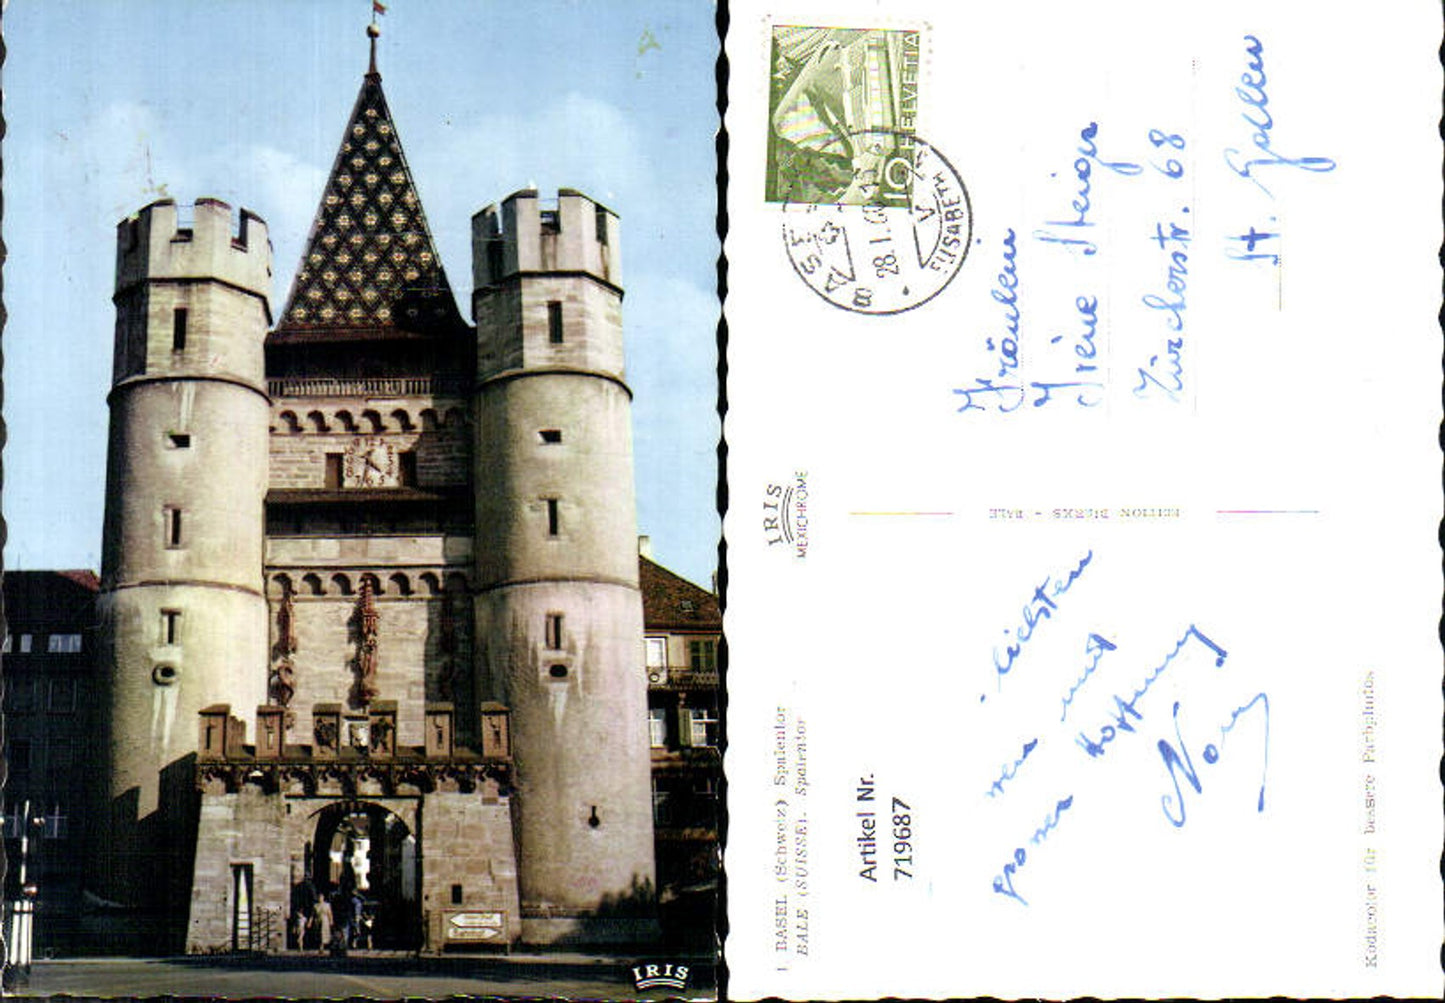 IRIS
HELVETIA
10
BASEL
28.I.60
V
ELISABETH
Fräulein
Irène Steiger
Zürcherstr. 68
St. Gallen
IRIS
MEXICHROME
EDITION BIERKS • BALE
lichsten
mit
grosser Hoffnung
1 BASEL (Schweiz) Spalentor
BALE (SUISSE). Spalentor
Artikel Nr.
719687
Kodacolor für bessere Farbphotos